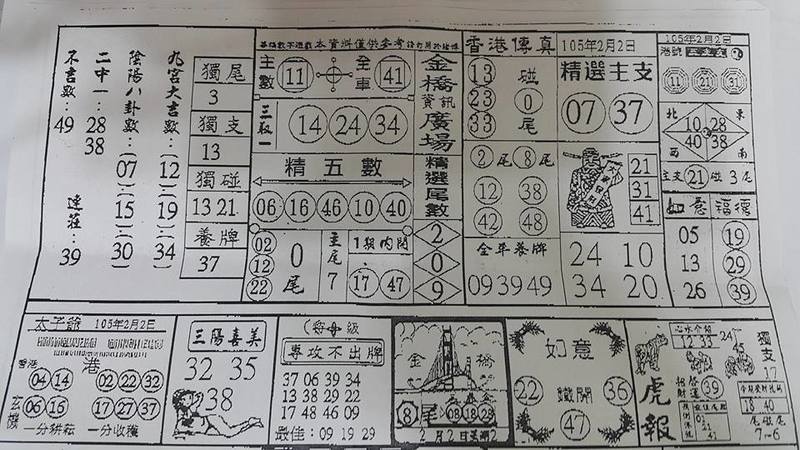 不吉數：49
二中一：28
38
陰陽八卦數：(07)(15)(30)
九宮大吉數：(12)(19)(34)
連莊：39
獨尾
3
獨支
13
獨碰
13 21
養牌
37
本資料僅供參考
主數 11
全車 41
14 24 34
精五數
06 16 46 10 40
02
12
22
0
尾
主尾
7
1期內開
17 47
金橋資訊廣場
精選尾數
2
0
9
香港傳真
105年2月2日
13
23
33
碰
0
尾
精選主支
07 37
2尾 8尾
12 38
42 48
21
31
41
全年養牌
09 39 49
24 10
34 20
105年2月2日
港號
11 21 31
北 東
10 28
40 38
西 南
主支 21 碰 3尾
福德
05 19
13 29
26 39
太子爺 105年2月2日
香港
港
04 14
02 22 32
玄機
06 16
17 27 37
一分耕耘 一分收穫
三陽喜美
32 35
38
級
專攻不出牌
37 06 39 34
13 38 29 22
17 48 46 09
最佳：09 19 29
金橋
8尾 08 18 28
2月2日
如意
22 鐵開 36
47
虎報
12 33
24
45
獨支
17
招財
39
18 40
尾碰尾
7-6